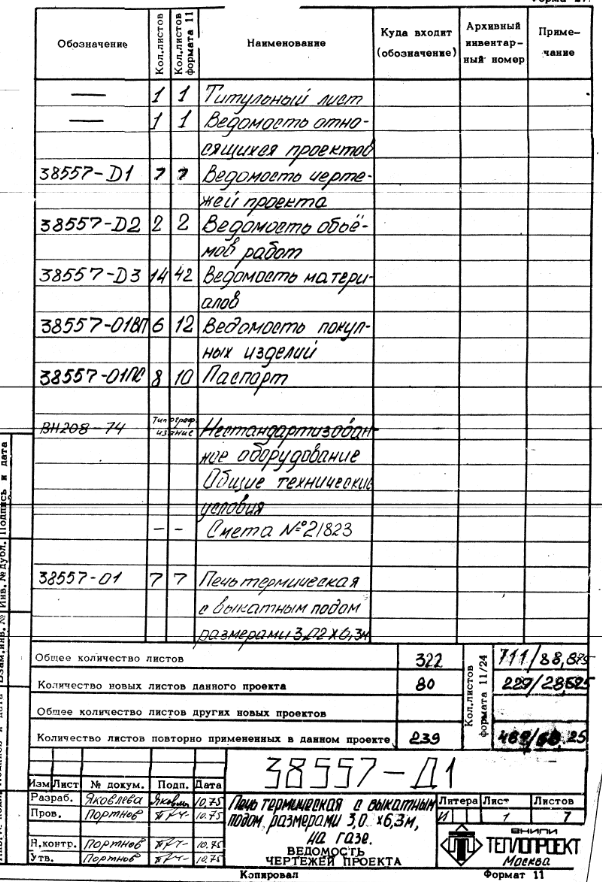 Форма 2г.
Обозначение
Кол.листов
Кол.листов формата 11
Наименование
Куда входит (обозначение)
Архивный инвентарный номер
Примечание
— 1 1 Титульный лист
— 1 1 Ведомость отно-
сящихся проектов
38557-Д1 7 7 Ведомость черте-
жей проекта
38557-Д2 2 2 Ведомость объё-
мов работ
38557-Д3 14 42 Ведомость матери-
алов
38557-01ВП 6 12 Ведомость покуп-
ных изделий
38557-01ПС 8 10 Паспорт
ВН208-74 Типограф. издание Нестандартизован-
ное оборудование
Общие технические
условия
- - Смета №21823
38557-01 7 7 Печь термическая
с выкатным подом
размерами 3,02х6,3м
Общее количество листов 322
Количество новых листов данного проекта 80
Общее количество листов других новых проектов
Количество листов повторно примененных в данном проекте 239
Кол.листов формата 11/24
711/88,875
38557-Д1
Изм Лист № докум. Подп. Дата
Разраб. Яковлева 10.75
Пров. Портнов 10.75
Н.контр. Портнов 10.75
Утв. Портнов 10.75
Печь термическая с выкатным
подом размерами 3,0 х6,3м,
на газе.
ВЕДОМОСТЬ
ЧЕРТЕЖЕЙ ПРОЕКТА
Литера Лист Листов
И 1 7
ВНИПИ
ТЕПЛОПРОЕКТ
Москва
Копировал Формат 11
Подпись и дата
Инв. № дубл.
Взам.инв. №